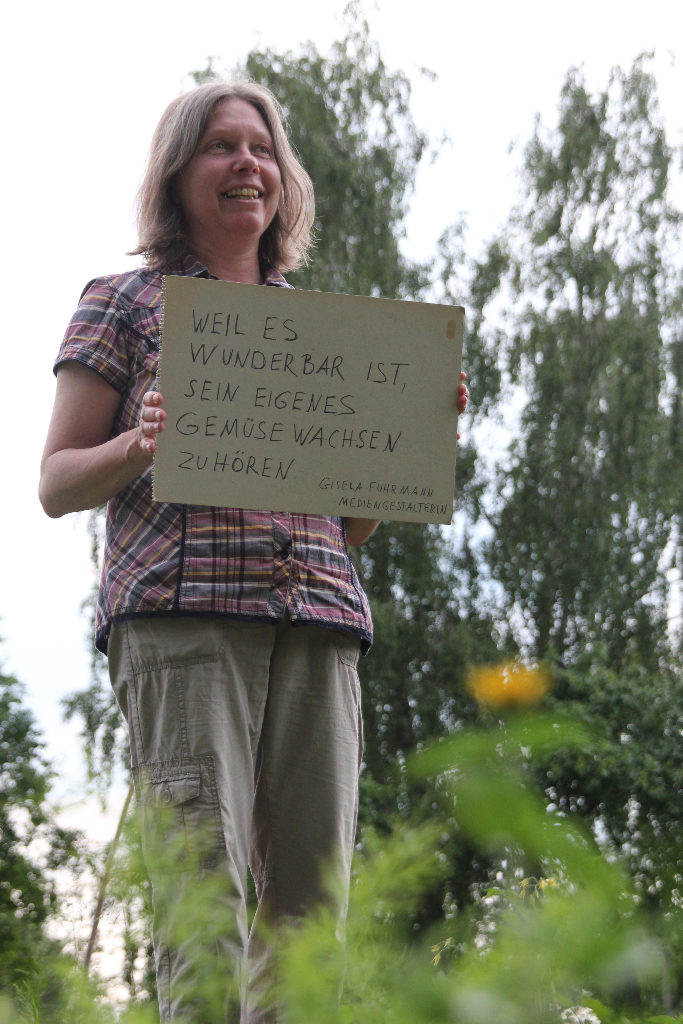 WEIL ES
WUNDERBAR IST,
SEIN EIGENES
GEMÜSE WACHSEN
ZU HÖREN.
GISELA FUHRMANN
MEDIENGESTALTERIN